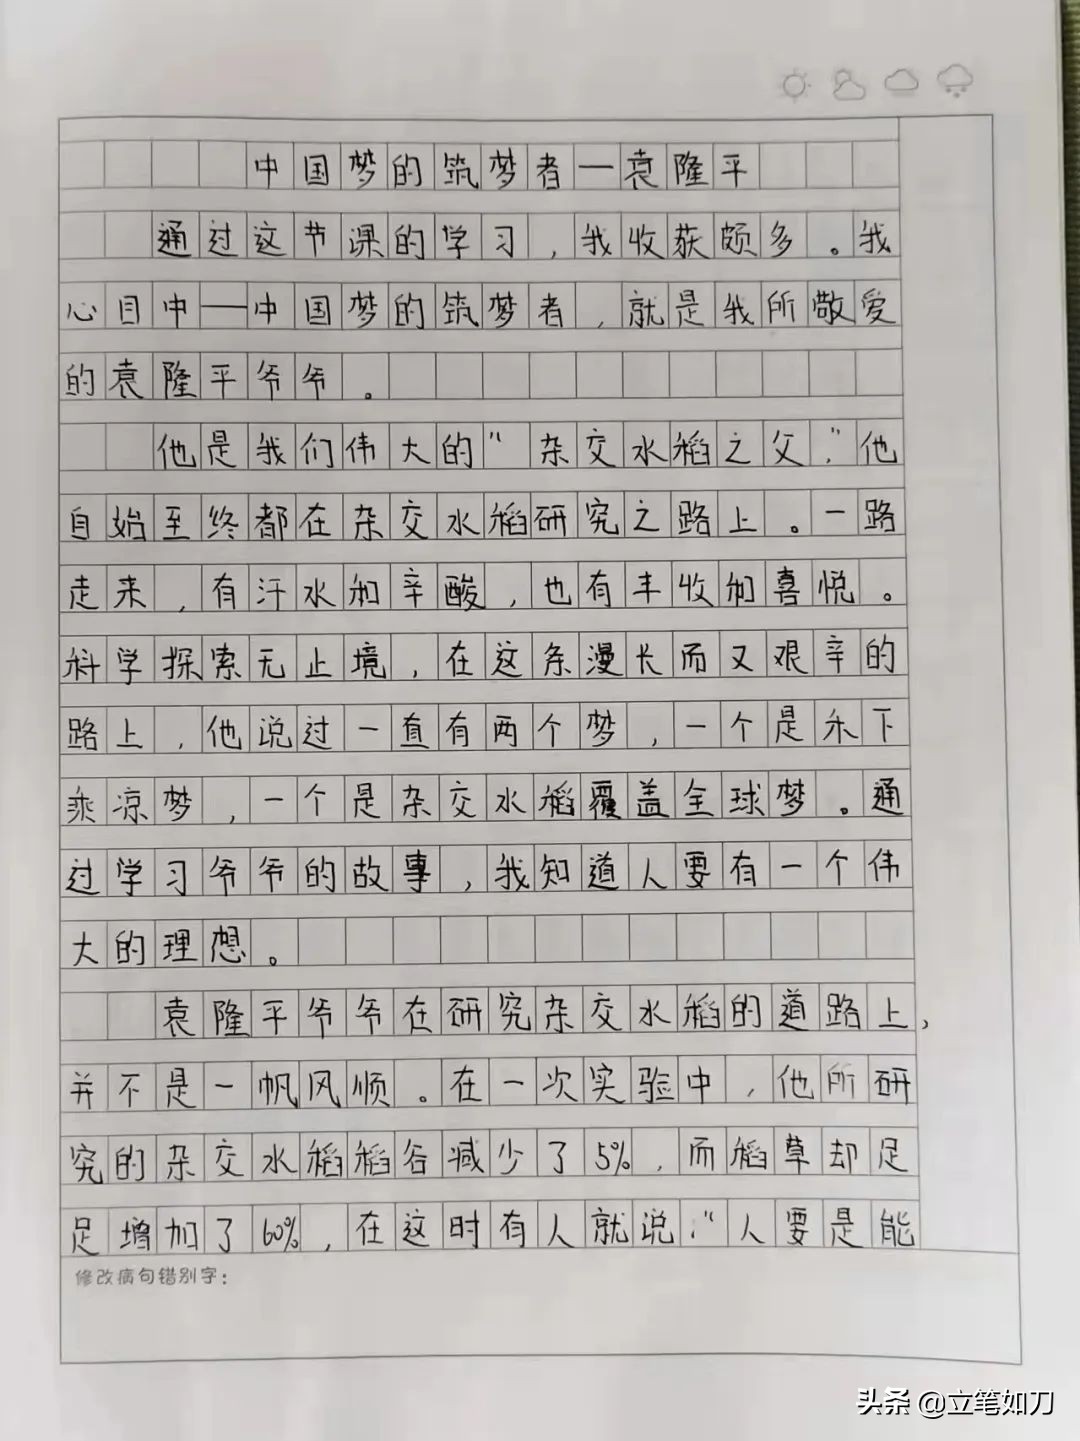 中国梦的筑梦者—袁隆平
通过这节课的学习，我收获颇多。我
心目中——中国梦的筑梦者，就是我所敬爱
的袁隆平爷爷。
他是我们伟大的“杂交水稻之父”.他
自始至终都在杂交水稻研究之路上。一路
走来，有汗水和辛酸，也有丰收和喜悦。
科学探索无止境，在这条漫长而又艰辛的
路上，他说过一直有两个梦，一个是禾下
乘凉梦，一个是杂交水稻覆盖全球梦。通
过学习爷爷的故事，我知道人要有一个伟
大的理想。
袁隆平爷爷在研究杂交水稻的道路上，
并不是一帆风顺。在一次实验中，他所研
究的杂交水稻稻谷减少了5%，而稻草却足
足增加了60%，在这时有人就说：“人要是能
修改病句错别字：
头条 @立笔如刀